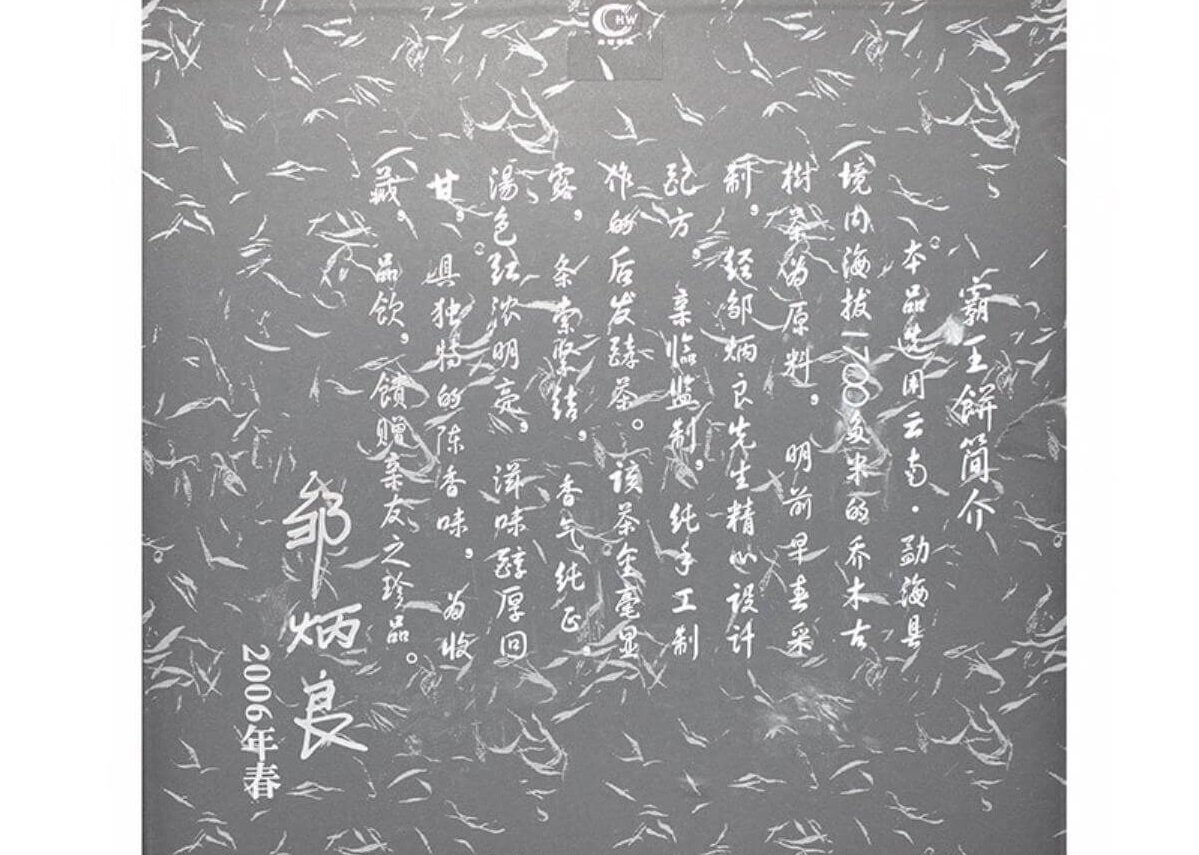 HW
霸王餅简介
本品选用云南·勐海县
境内海拔1700多米的乔木古
樹茶为原料，明前早春采
制，经邹炳良先生精心设计
配方，亲临监制，纯手工制
作的后发酵茶。该茶金毫显
露，条索紧结，香气纯正，
湯色红浓明亮，滋味醇厚回
甘，具独特的陈香味，为收
藏，品饮，馈赠亲友之珍品。
邹炳良
2006年春